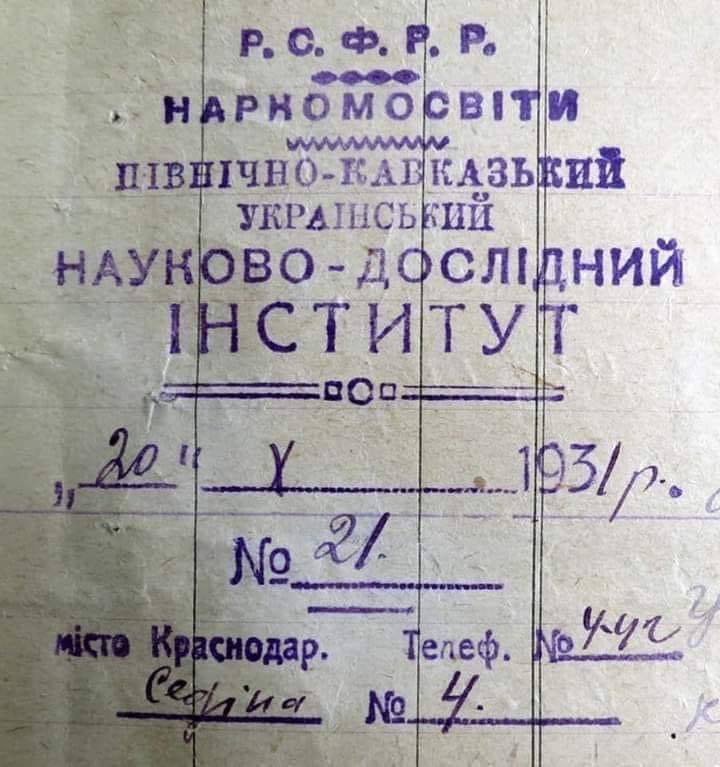 Р. С. Ф. Р. Р.
НАРКОМОСВІТИ
ПІВНІЧНО-КАВКАЗЬКИЙ
УКРАІНСЬКИЙ
НАУКОВО-ДОСЛІДНИЙ
ІНСТИТУТ
„20“ X 1931 р.
№ 21.
місто Краснодар. Телеф. №
Седіна № 4.